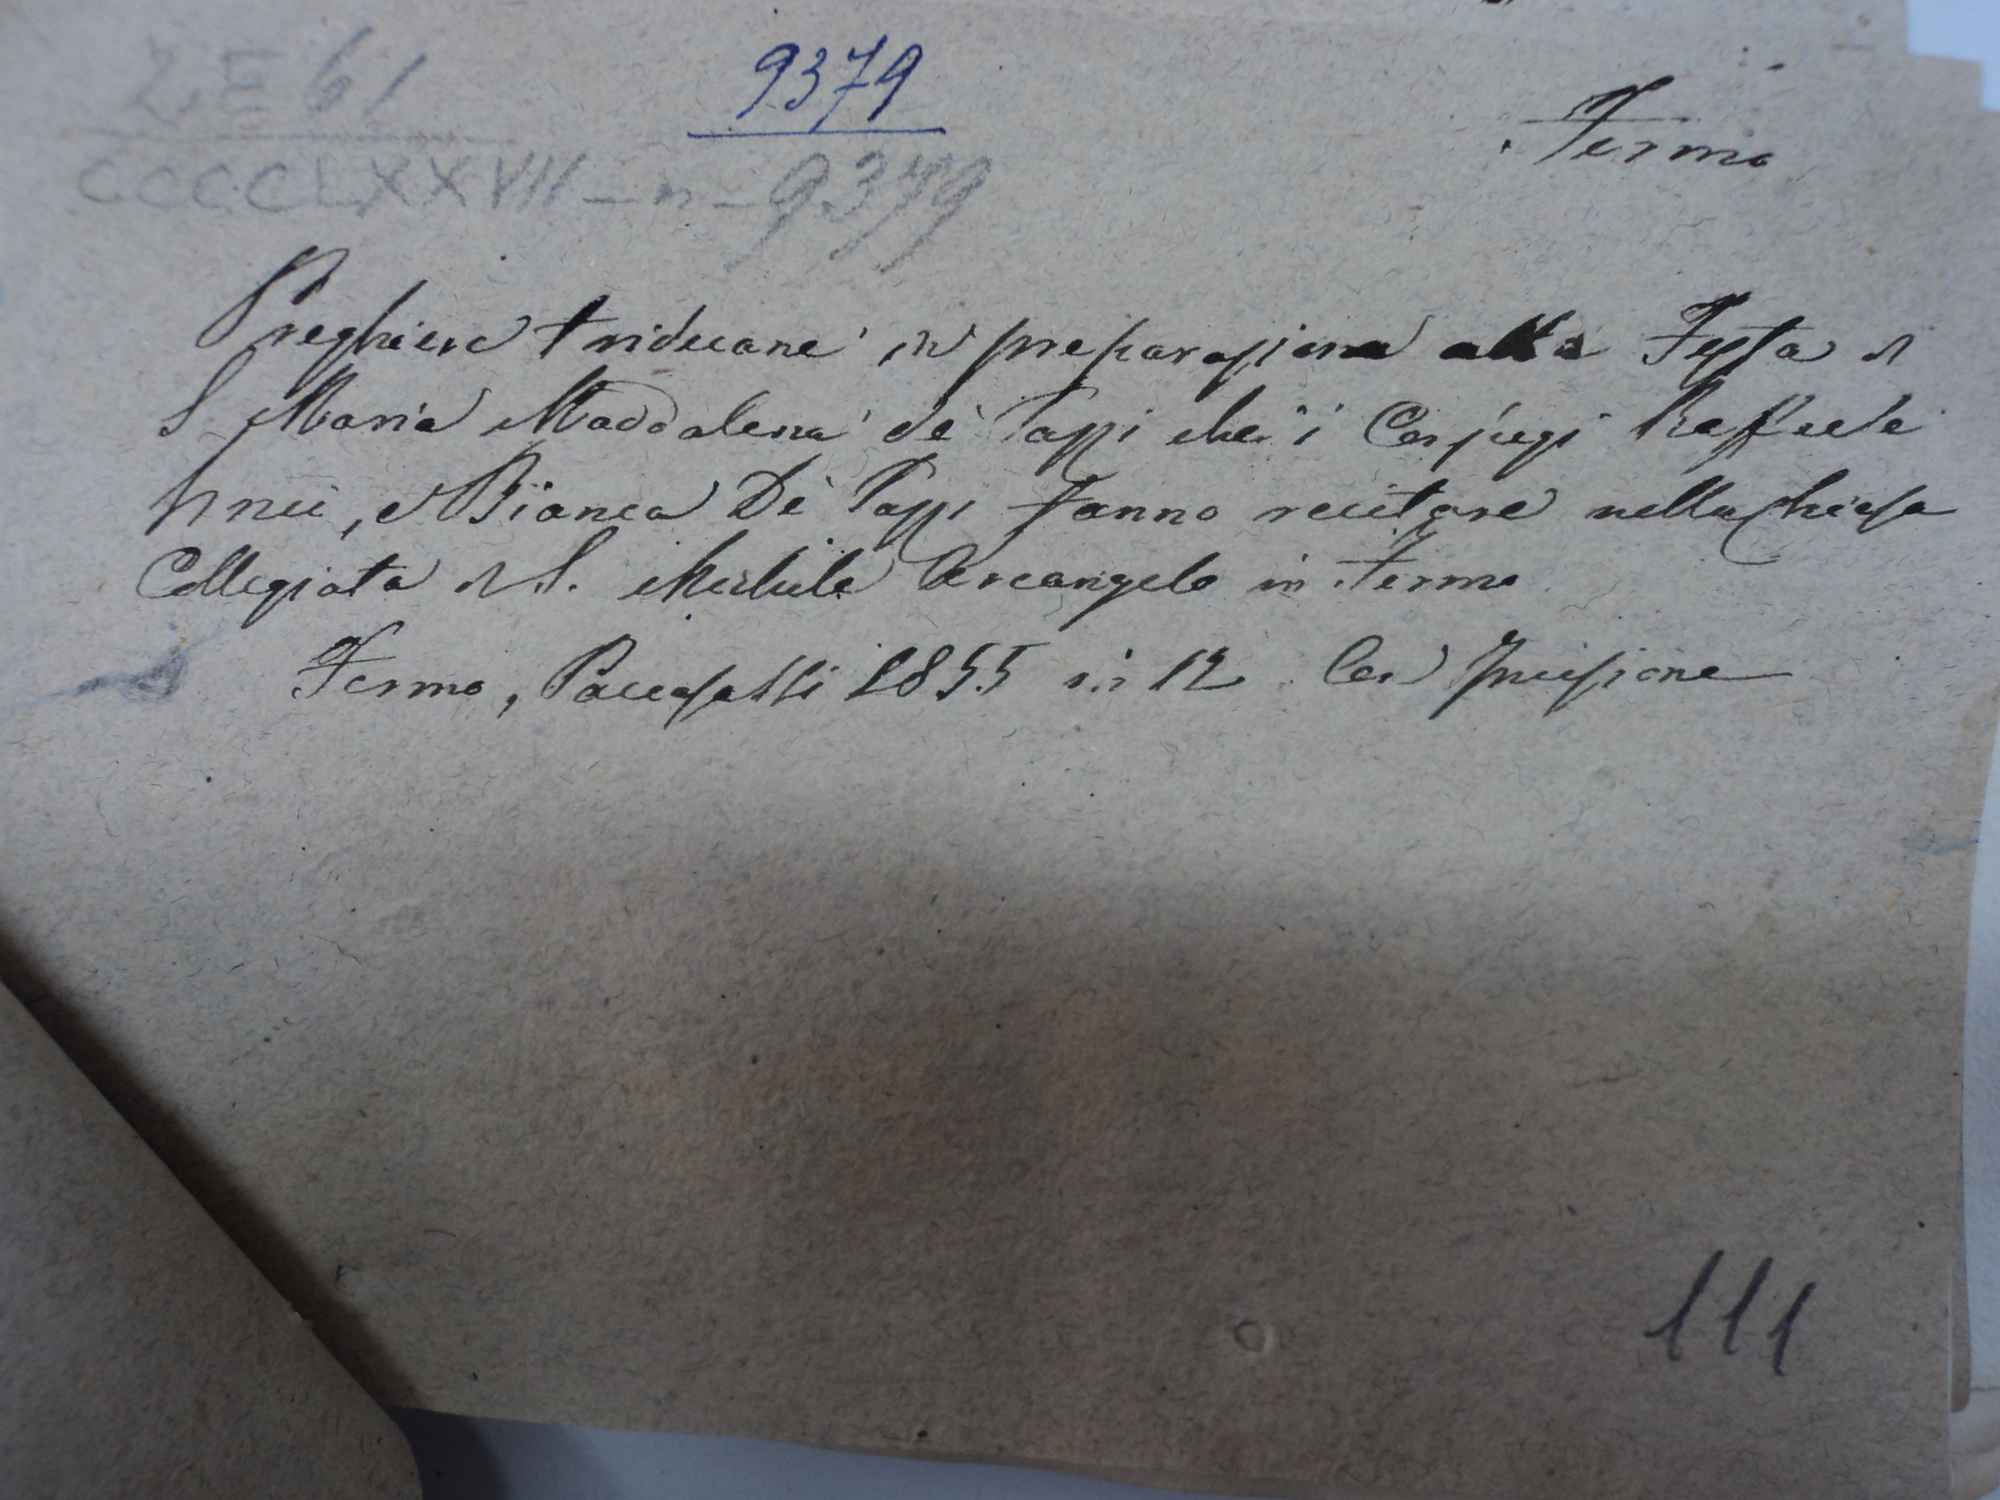 2. E 61
9379
Fermo
CCCCLXXVIII - n - 9379
Preghiere triduane in preparazione alla Festa di
S. Maria Maddalena de' Pazzi che i Conjugi Raffaele
e Bianca De' Pazzi fanno recitare nella Chiesa
Collegiata di S. Michele Arcangelo in Fermo
Fermo, Paccasassi 1855 in 12 Con Incisione
111